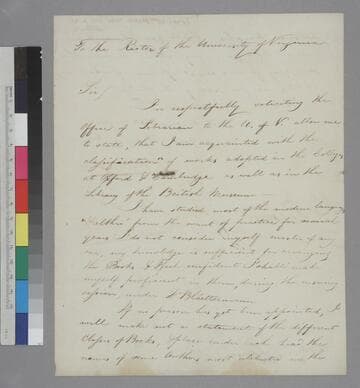 To the Rector of the University of Virginia
Sir,
In respectfully soliciting the
Office of Librarian to the U. of V. allow me
to state, that I am acquainted with the
classifications of works adopted in the Colleges
at Oxford & Cambridge as well as in the
Library of the British Museum
I have studied most of the modern languages
from the want of practice for several
years I do not consider myself master of any
my knowledge is sufficient for arranging
the Books & I feel confident I shall make
myself proficient in them, during the ensuing
session, under Blaettermann
If no person has yet been appointed, I
will make out a statement of the different
Classes of Books, & place under each head the
names of some Authors most celebrated in the